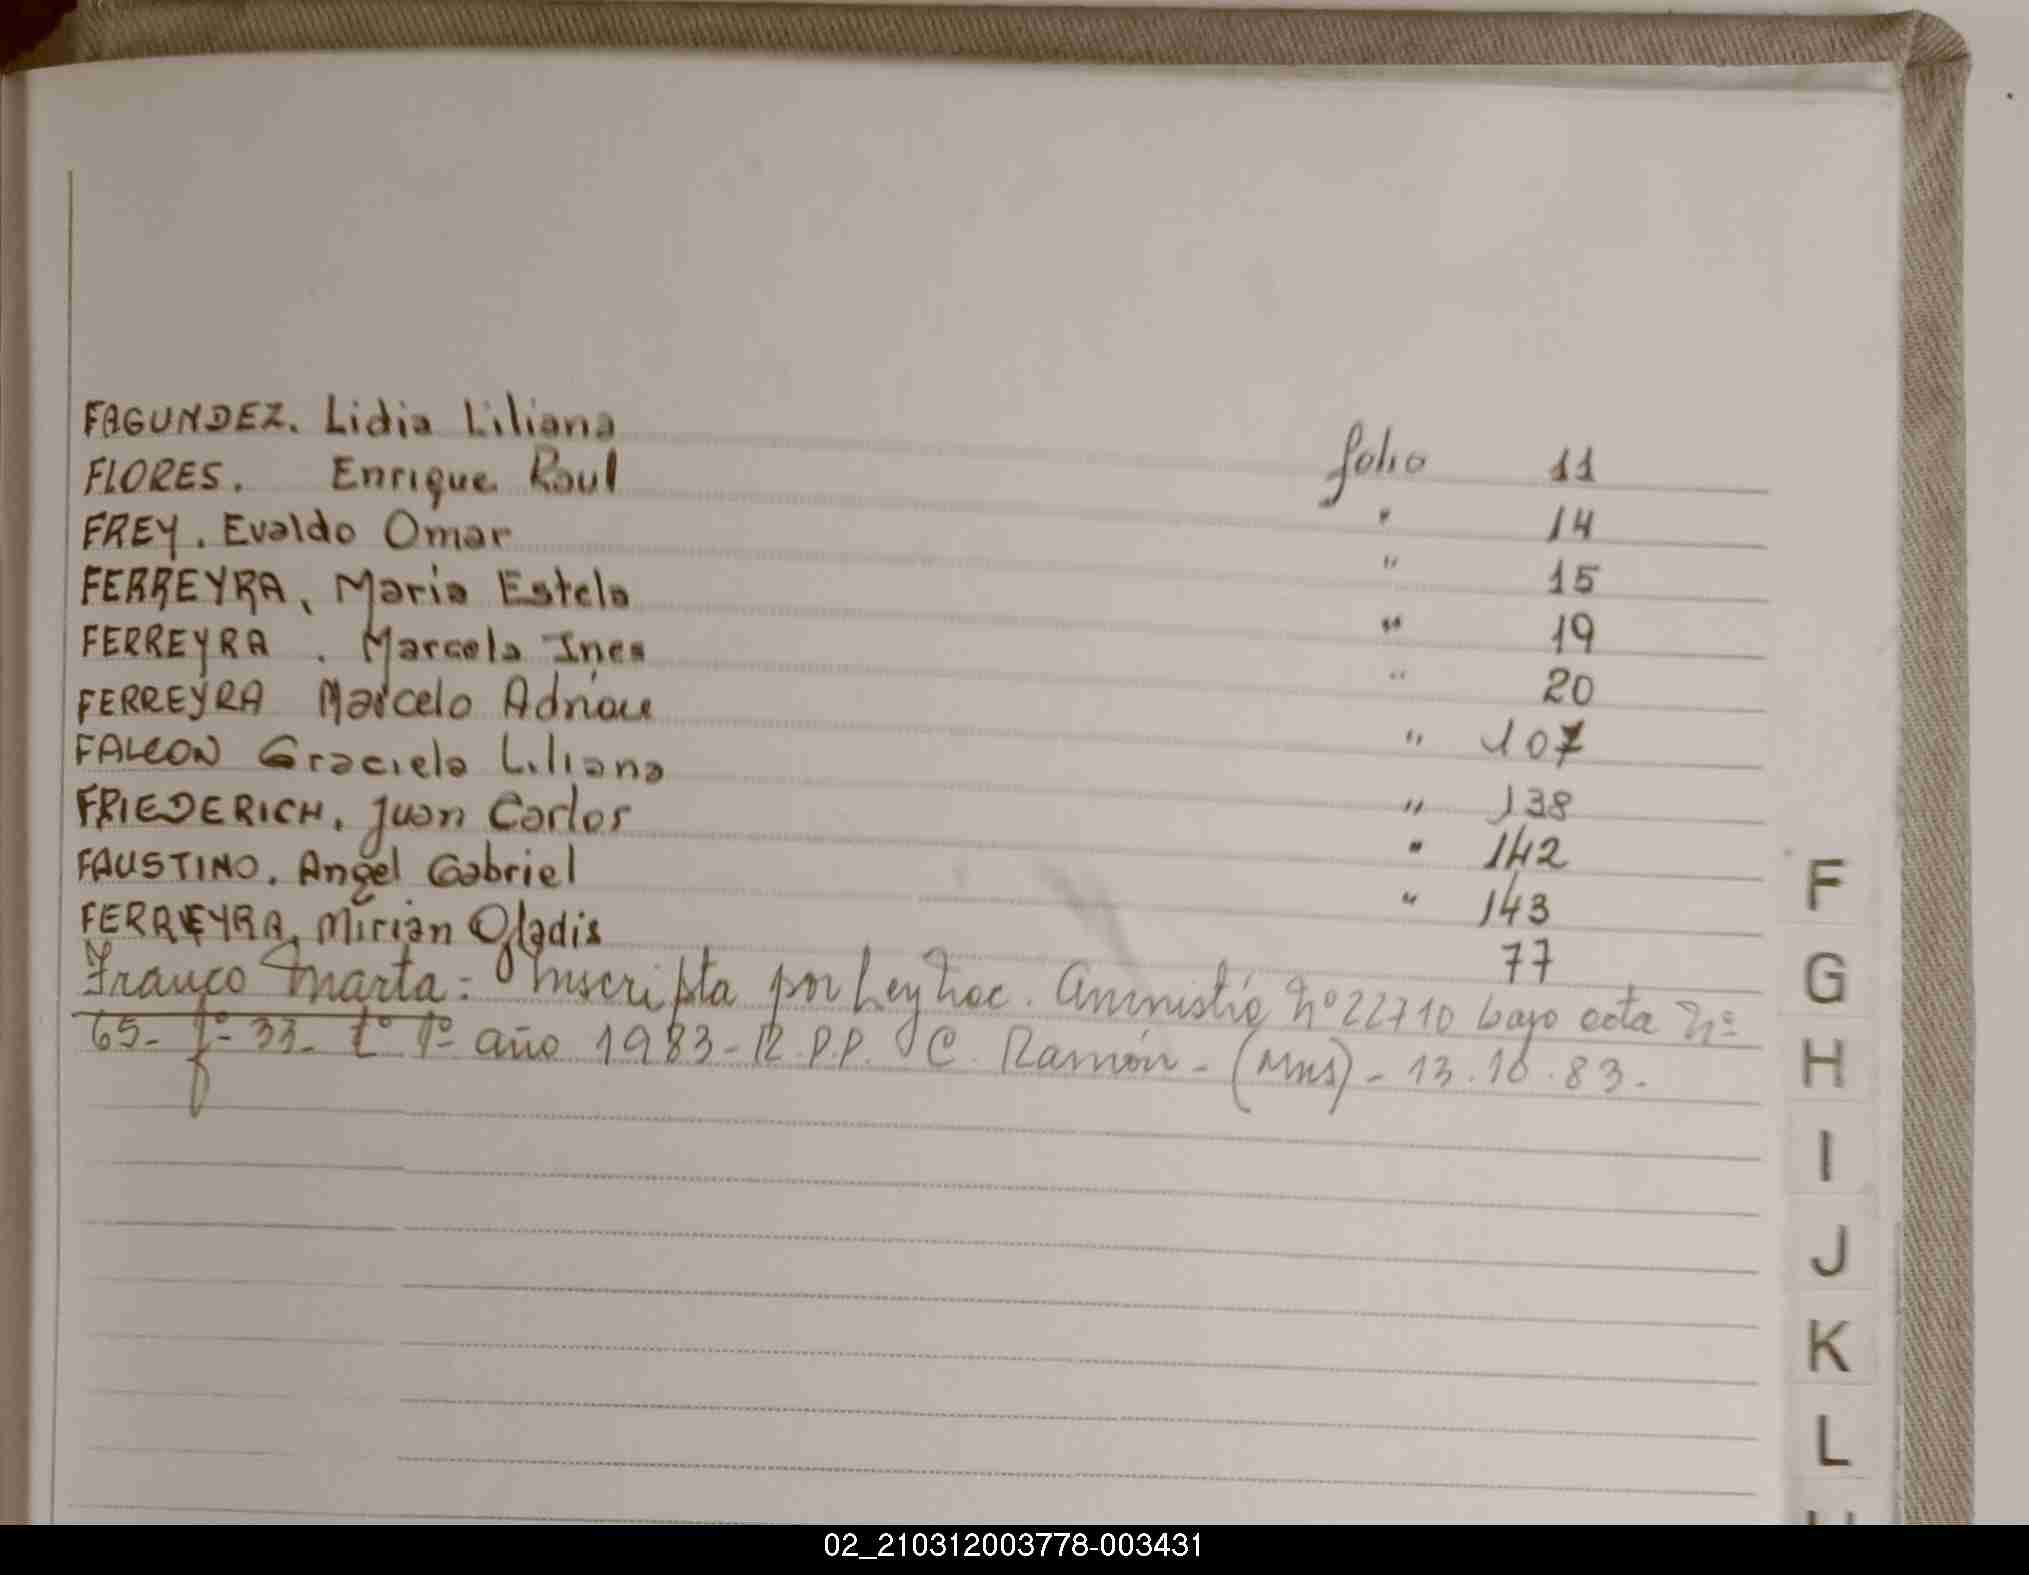 FAGUNDEZ. Lidia Liliana folio 11
FLORES. Enrique Raul " 14
FREY. Evaldo Omar " 15
FERREYRA, Maria Estela " 19
FERREYRA. Marcela Ines " 20
FERREYRA Marcelo Adrian " 107
FALCON Graciela Liliana " 138
FRIEDERICH, Juan Carlos " 142
FAUSTINO. Angel Gabriel " 143
FERREYRA, Mirian Gladis 77
Franco Marta: Inscripta por Ley Nac. Amnistia Nº 22710 bajo acta Nº
65- fº- 33- tº 1º año 1983- R.P.P. C. Ramón- (Mns)- 13.10.83-
F
G
H
I
J
K
L
02_210312003778-003431